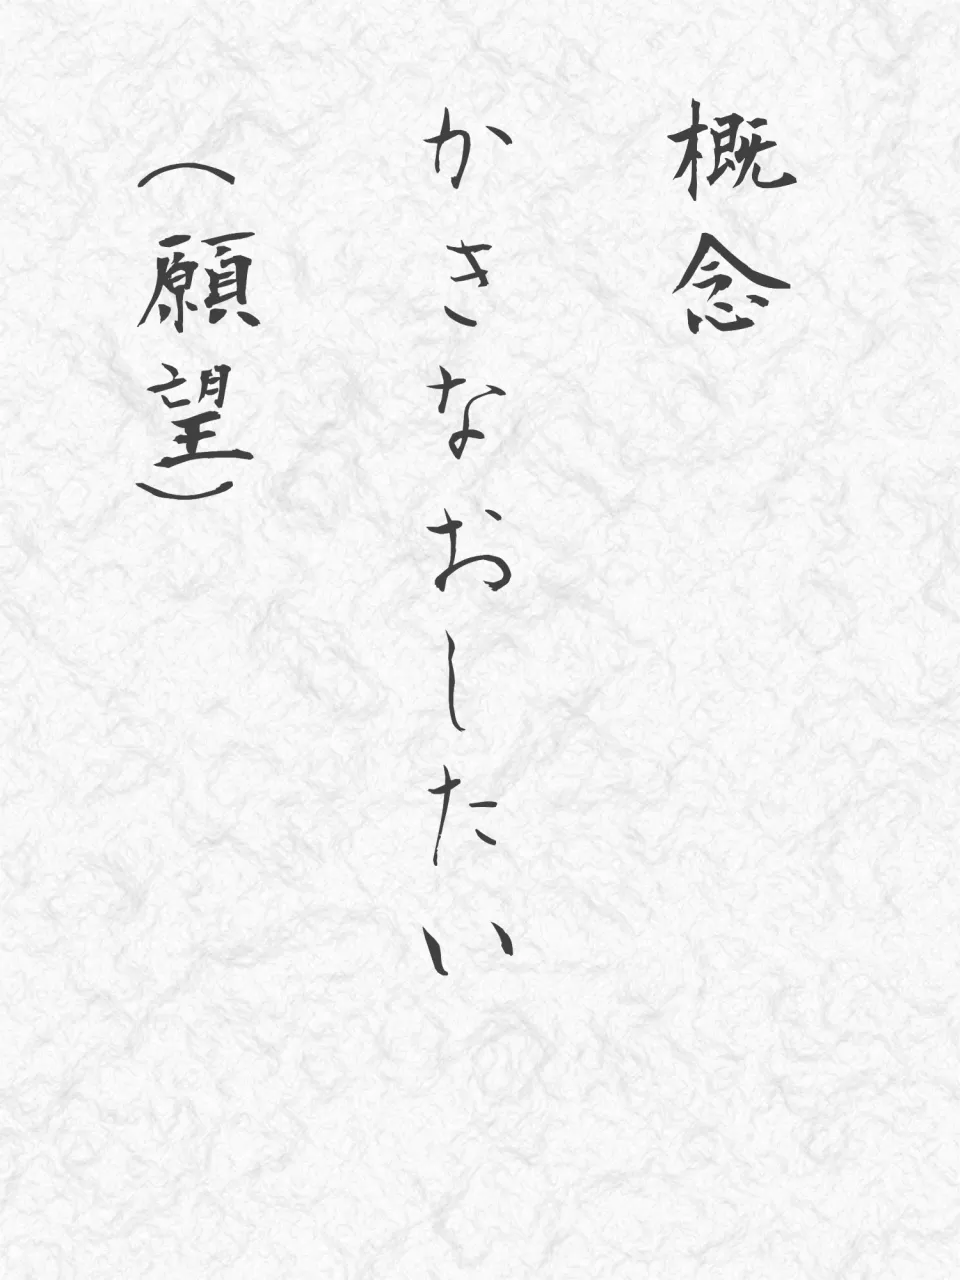 概念
かきなおしたい
（願望）